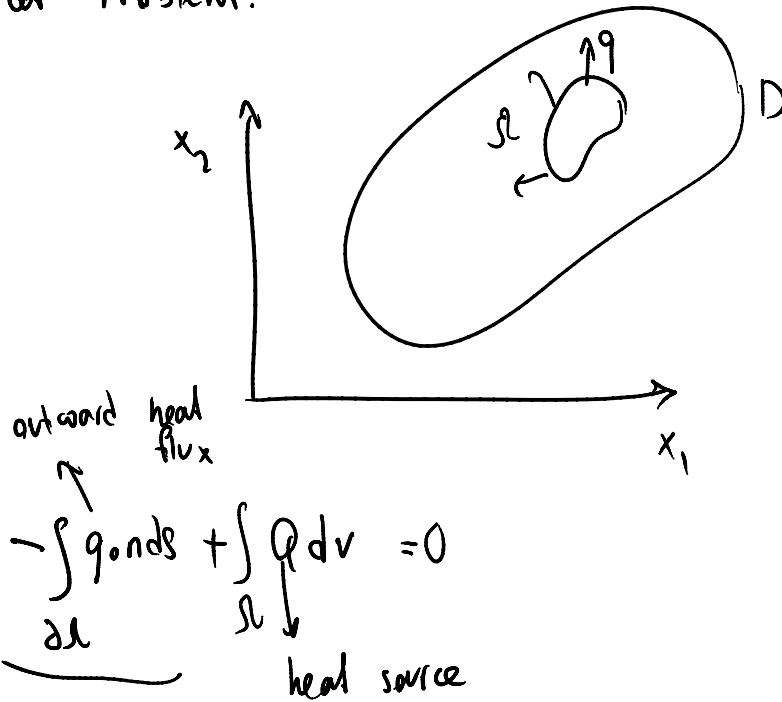 Problem.
q
D
Ω
x₂
x₁
outward heat
flux
-∫ q.nds + ∫ Q dv = 0
∂Ω Ω
heat source